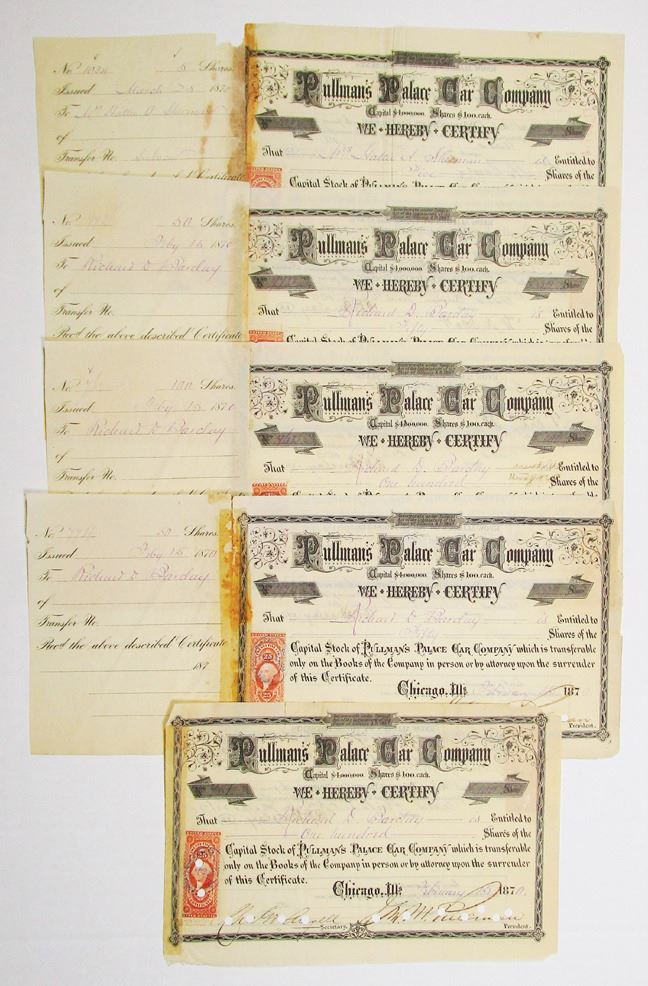 No. 1024 5 Shares.
Issued March 1870
To Mrs Hattie A. Sherman
of
Transfer No.
Pullman's Palace Car Company
Capital $1,000,000. Shares $100. each.
WE HEREBY CERTIFY
That Mrs Hattie A. Sherman is Entitled to
Five Shares of the
Capital Stock of PULLMAN'S PALACE CAR COMPANY which is transferable
No. 50 Shares.
Issued Feby 15 1870
To Richard D Barclay
of
Transfer No.
Rec'd the above described Certificate
Pullman's Palace Car Company
Capital $1,000,000. Shares $100. each.
WE HEREBY CERTIFY
That Richard D. Barclay is Entitled to
Fifty Shares of the
Capital Stock of PULLMAN'S PALACE CAR COMPANY which is transferable
No. 100 Shares.
Issued Feby 15 1870
To Richard D Barclay
of
Transfer No.
Pullman's Palace Car Company
Capital $1,000,000. Shares $100. each.
WE HEREBY CERTIFY
That Richard D. Barclay Entitled to
One hundred Shares of the
No. 50 Shares.
Issued Feby 15 1870
To Richard D Barclay
of
Transfer No.
Rec'd the above described Certificate
187
Pullman's Palace Car Company
Capital $1,000,000. Shares $100. each.
WE HEREBY CERTIFY
That Richard D Barclay is Entitled to
Fifty Shares of the
Capital Stock of PULLMAN'S PALACE CAR COMPANY which is transferable
only on the Books of the Company in person or by attorney upon the surrender
of this Certificate.
Chicago, Ills. February 187
President.
25 25
Pullman's Palace Car Company
Capital $1,000,000. Shares $100. each.
WE HEREBY CERTIFY
That Richard D Barclay is Entitled to
One hundred Shares of the
Capital Stock of PULLMAN'S PALACE CAR COMPANY which is transferable
only on the Books of the Company in person or by attorney upon the surrender
of this Certificate.
Chicago, Ills. February 15 1870.
Secretary. President.